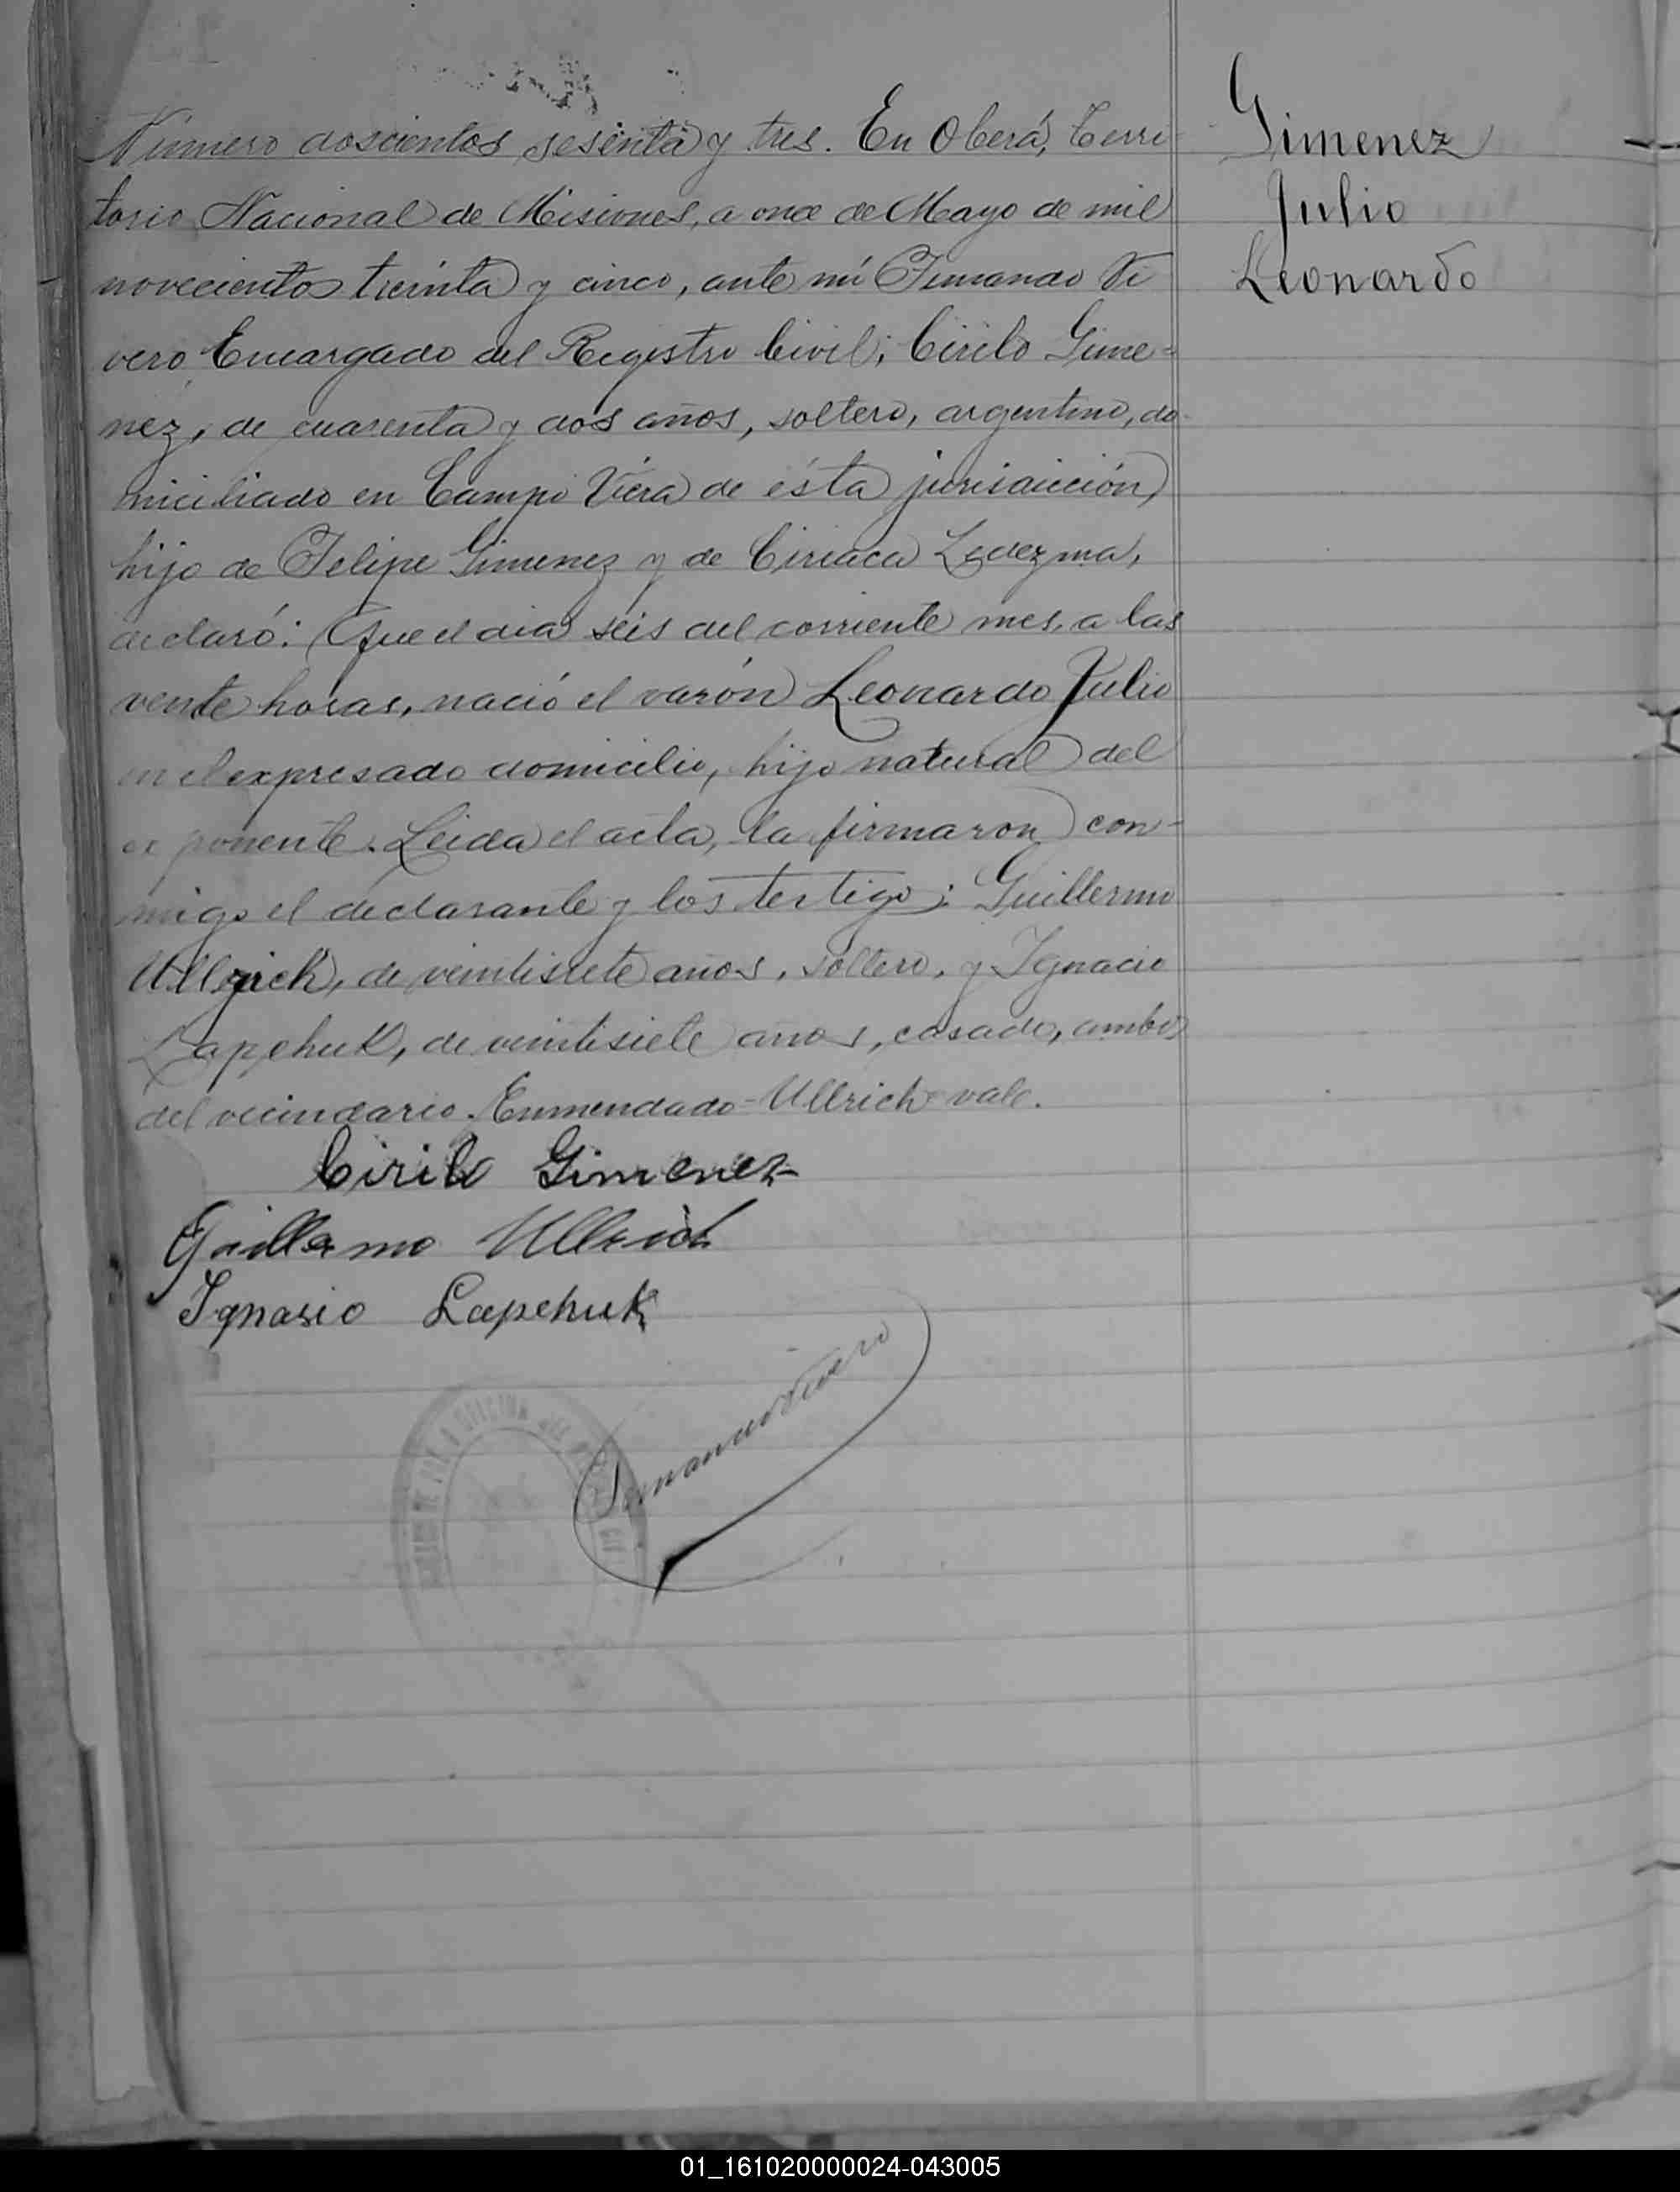 Número doscientos sesenta y tres. En Oberá, Terri-
torio Nacional de Misiones, a once de Mayo de mil
novecientos treinta y cinco, ante mí Fernando Vi
vero Encargado del Registro Civil; Cirilo Gime-
nez, de cuarenta y dos años, soltero, argentino, do-
miciliado en Campo Viera de ésta jurisdicción,
hijo de Felipe Gimenez y de Ciriaca Ledezma,
declaró: Que el dia seis del corriente mes, a las
vente horas, nació el varón Leonardo Julio
en el expresado domicilio, hijo natural del
exponente. Leida el acta, la firmaron con-
migo el declarante y los testigos: Guillermo
Ullrich, de veintisiete años, soltero, y Ignacio
Lapchuk, de veintisiete años, casado, ambos
del vecindario. Enmendado-Ullrich-vale.
Cirilo Gimenez
Guillermo Ullrich
Ignasio Lapchuk
Fernando Vivero
Gimenez
Julio
Leonardo
01_161020000024-043005